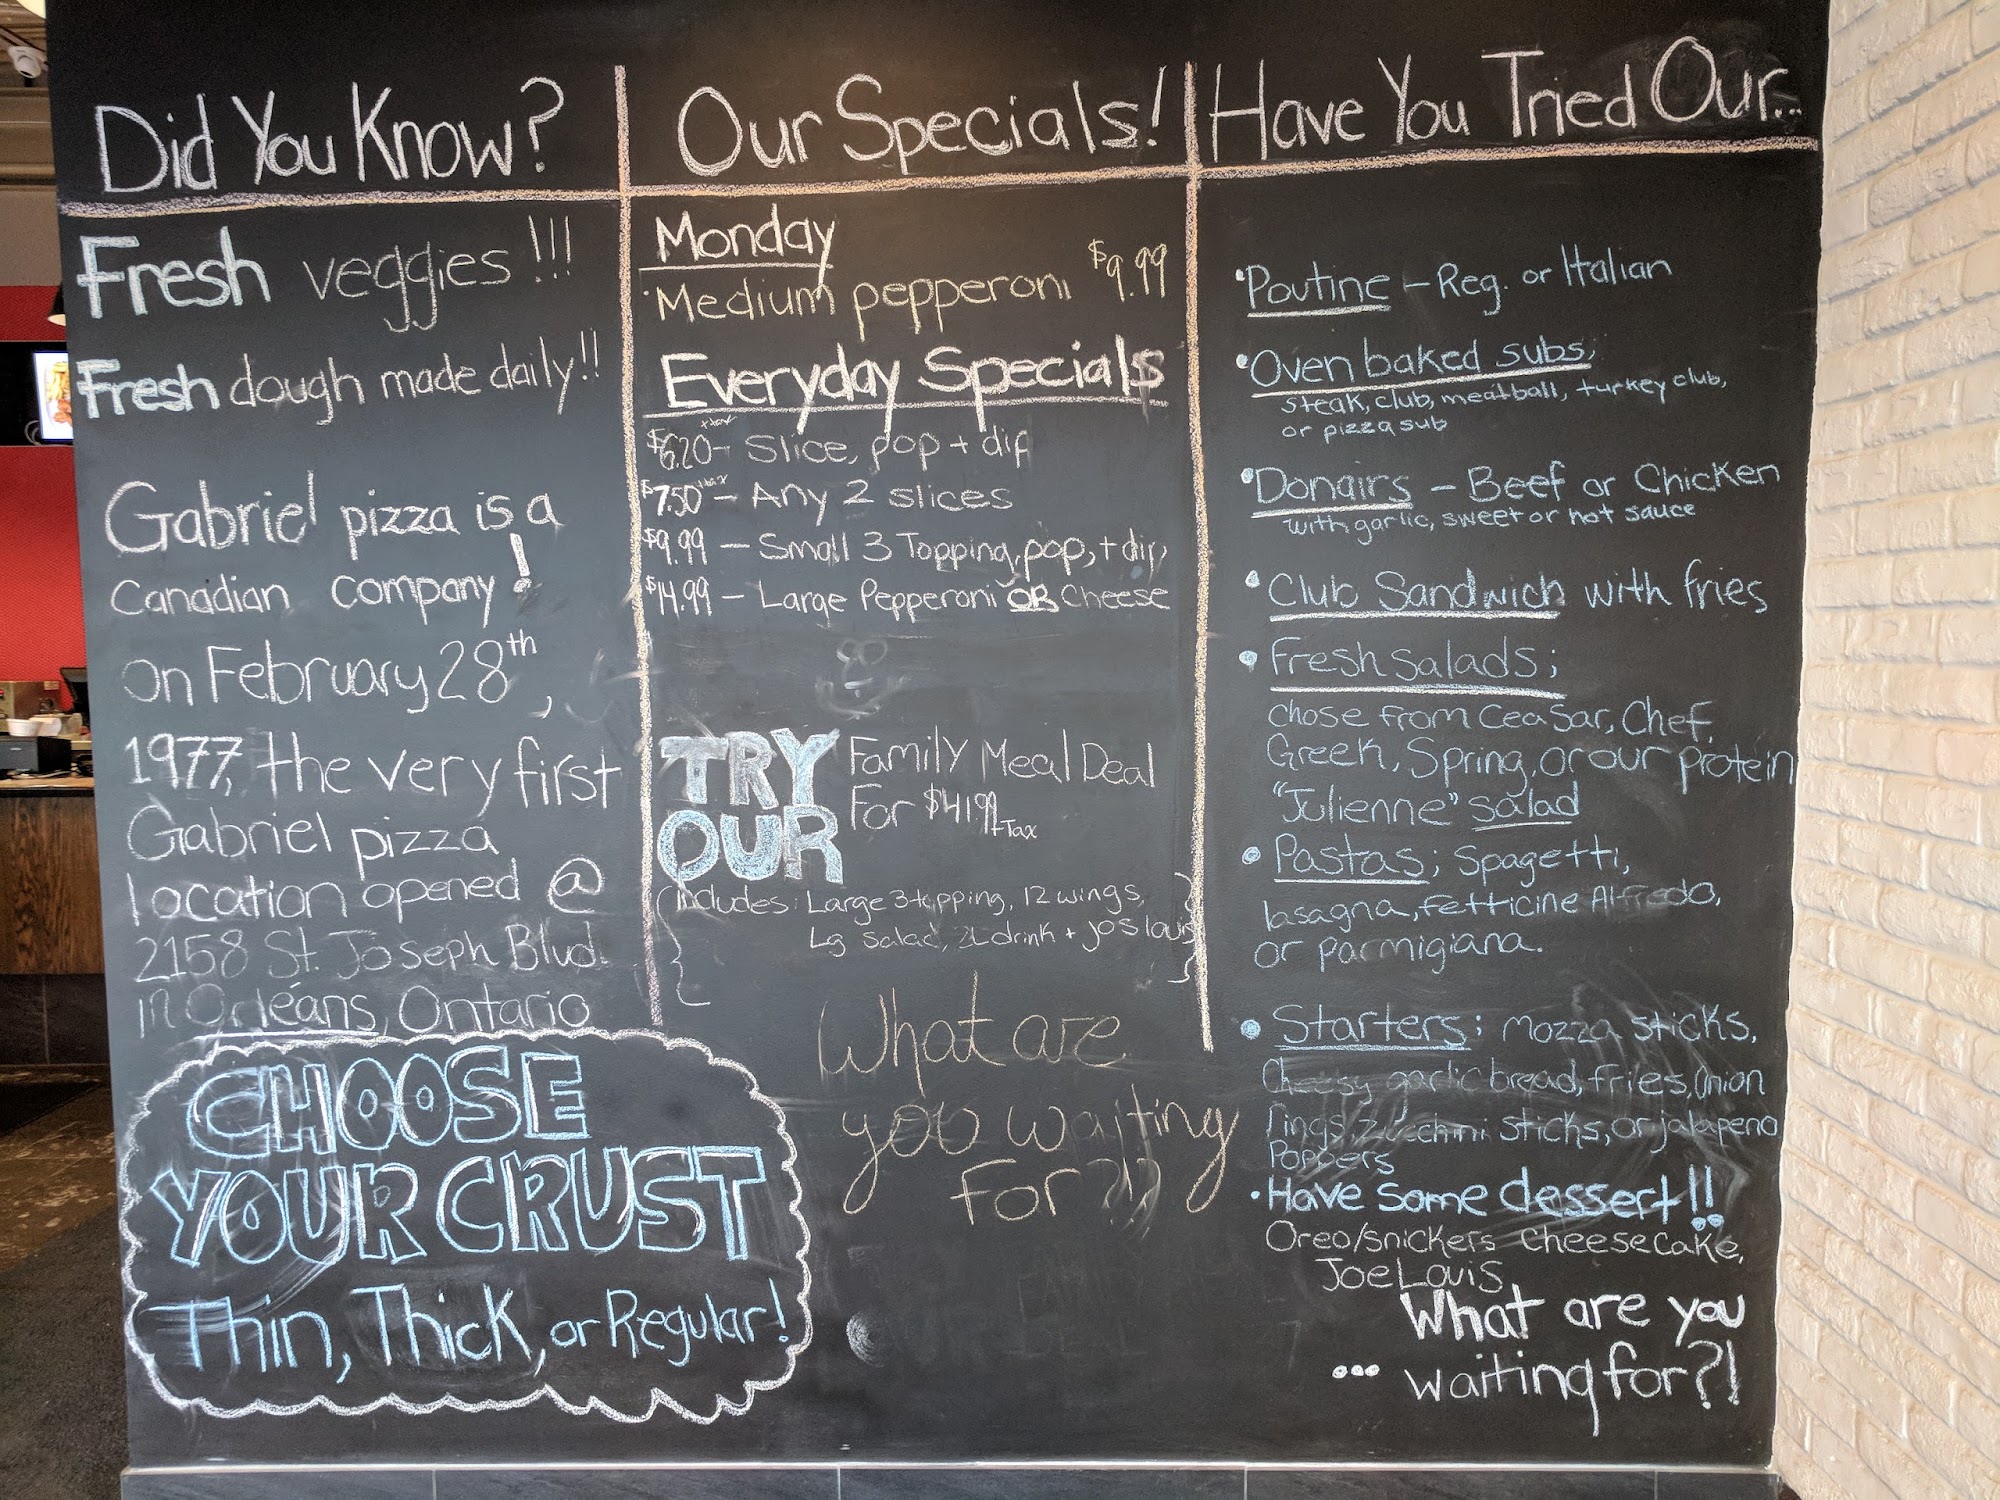 Did You Know?
Fresh veggies!!!
Fresh dough made daily!!
Gabriel pizza is a
Canadian company!
on February 28th,
1977, the very first
Gabriel pizza
location opened @
2158 St. Joseph Blvd.
in Orléans, Ontario
CHOOSE
YOUR CRUST
Thin, Thick, or Regular!
Our Specials!
Monday
·Medium pepperoni $9.99
Everyday Specials
$6.20 +tax - Slice, pop + dip
$7.50 +tax - Any 2 slices
$9.99 - Small 3 Topping, pop, + dip
$14.99 - Large Pepperoni OR Cheese
TRY
OUR
Family Meal Deal
For $41.99
+Tax
(includes: Large 3 topping, 12 wings,
Lg salad, 2L drink + jos louis)
What are
you waiting
for?!?
Have You Tried Our...
•Poutine - Reg. or Italian
•Oven baked subs;
steak, club, meatball, turkey club,
or pizza sub
•Donairs - Beef or Chicken
with garlic, sweet or hot sauce
•Club Sandwich with fries
•Fresh salads;
chose from Ceasar, Chef,
Greek, Spring, or our protein
"Julienne" salad
•Pastas; Spagetti,
lasagna, fetticine Alfredo,
or parmigiana.
•Starters; Mozza sticks,
Cheesy garlic bread, fries, Onion
rings, zucchini sticks, or jalapeno
Poppers
•Have some dessert!!
Oreo/snickers cheesecake,
Joe Louis,
What are you
... waiting for?!